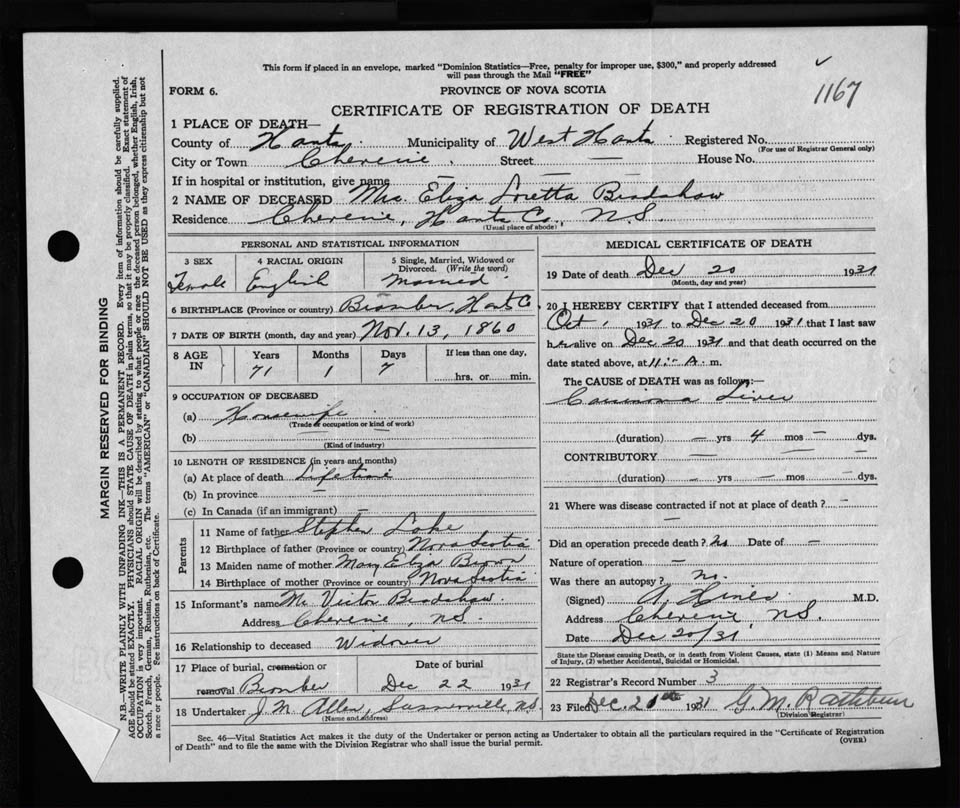 This form if placed in an envelope, marked "Dominion Statistics—Free, penalty for improper use, $300," and properly addressed
will pass through the Mail "FREE"
1167
FORM 6.
PROVINCE OF NOVA SCOTIA
CERTIFICATE OF REGISTRATION OF DEATH
MARGIN RESERVED FOR BINDING
N.B.—WRITE PLAINLY WITH UNFADING INK—THIS IS A PERMANENT RECORD. Every item of information should be carefully supplied.
AGE should be stated EXACTLY. PHYSICIANS should STATE CAUSE OF DEATH in plain terms, so that it may be properly classified. Exact statement of
OCCUPATION is very important. RACIAL ORIGIN will be described by stating to what people or race the deceased person belonged, whether English, Irish,
Scotch, French, German, Russian, Ruthenian, etc. The terms "AMERICAN" or "CANADIAN" SHOULD NOT BE USED as they express citizenship but not
a race or people. See instructions on back of Certificate.
1 PLACE OF DEATH—
County of Hants Municipality of West Hants Registered No.
(For use of Registrar General only)
City or Town Cheverie Street — House No.
If in hospital or institution, give name — —
2 NAME OF DECEASED Mrs. Eliza Loretta Bradshaw
Residence Cheverie, Hants Co, N.S.
(Usual place of abode)
PERSONAL AND STATISTICAL INFORMATION
3 SEX 4 RACIAL ORIGIN 5 Single, Married, Widowed or
Divorced. (Write the word)
Female English Married
6 BIRTHPLACE (Province or country) Hants Co.
7 DATE OF BIRTH (month, day and year) Nov. 13, 1860
8 AGE IN Years Months Days If less than one day,
71 1 7 hrs. or min.
9 OCCUPATION OF DECEASED
(a) Housewife
(Trade or occupation or kind of work)
(b)
(Kind of industry)
10 LENGTH OF RESIDENCE (in years and months)
(a) At place of death Lifetime
(b) In province —
(c) In Canada (if an immigrant) —
Parents
11 Name of father Stephen Lake
12 Birthplace of father (Province or country) Nova Scotia
13 Maiden name of mother Mary Eliza Brown
14 Birthplace of mother (Province or country) Nova Scotia
15 Informant's name Mr Victor Bradshaw.
Address Cheverie, N.S.
16 Relationship to deceased Widower
17 Place of burial, cremation or Date of burial
removal Dec 22 1931
18 Undertaker J N Allen, Summerville, N.S.
(Name and address)
MEDICAL CERTIFICATE OF DEATH
19 Date of death Dec 20 1931
(Month, day and year)
20 I HEREBY CERTIFY that I attended deceased from
Oct, 1931 to Dec 20 1931 that I last saw
her alive on Dec 20 1931 and that death occurred on the
date stated above, at 11:- A. m.
The CAUSE OF DEATH was as follows:—
Carcinoma Liver
(duration) — yrs 4 mos — dys.
CONTRIBUTORY — —
(duration) — yrs — mos — dys.
21 Where was disease contracted if not at place of death? —
—
Did an operation precede death? No Date of —
Nature of operation —
Was there an autopsy? no.
(Signed) A. Hines M.D.
Address Cheverie, N.S.
Date Dec 20/31
State the Disease causing Death, or in death from Violent Causes, state (1) Means and Nature
of Injury, (2) whether Accidental, Suicidal or Homicidal.
22 Registrar's Record Number 3
23 Filed Dec. 20th 1931 G. M. Rathburn
(Division Registrar)
Sec. 46—Vital Statistics Act makes it the duty of the Undertaker or person acting as Undertaker to obtain all the particulars required in the "Certificate of Registration
of Death" and to file the same with the Division Registrar who shall issue the burial permit.
(OVER)